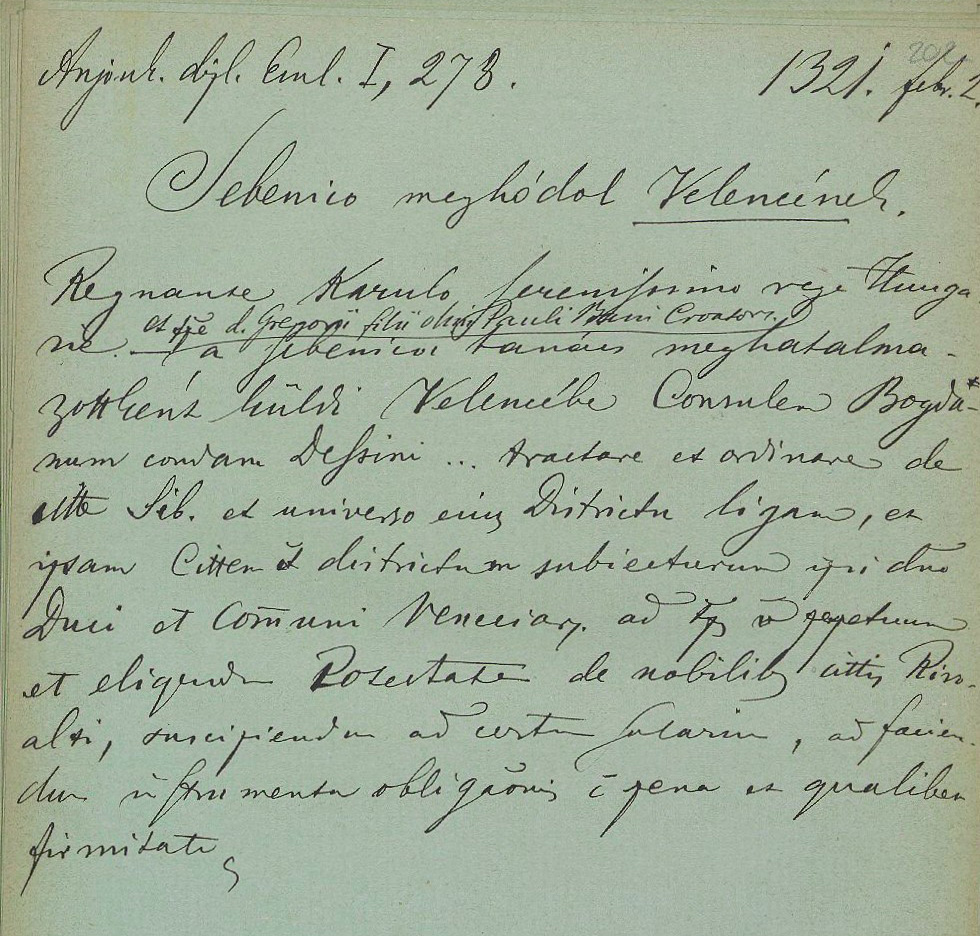 202
Anjouk. dipl. Eml. I, 273. 1321. febr. 2.
Sebenico meghódol Velencének.
Regnante Karulo serenissimo rege Hunga
et d. Gregorii filii olim Pauli Bani Croator.
rie. — a sebenicoi tanács meghatalma-
zottként küldi Velencébe Consulem Bogda
num condam Dessini ... tractare et ordinare de
citte Sib. et universo eius Districtu ligam, et
ipsam Cittem et districtum subiecturum ipi dno
Duci et Comuni Veneciar. ad perpetuum
et eligendum Potestate de nobilib cittis Rivo-
alti, suscipiendum ad certum salarium, ad facien-
dum instrumenta obligaonis pena et qualibet
firmitate